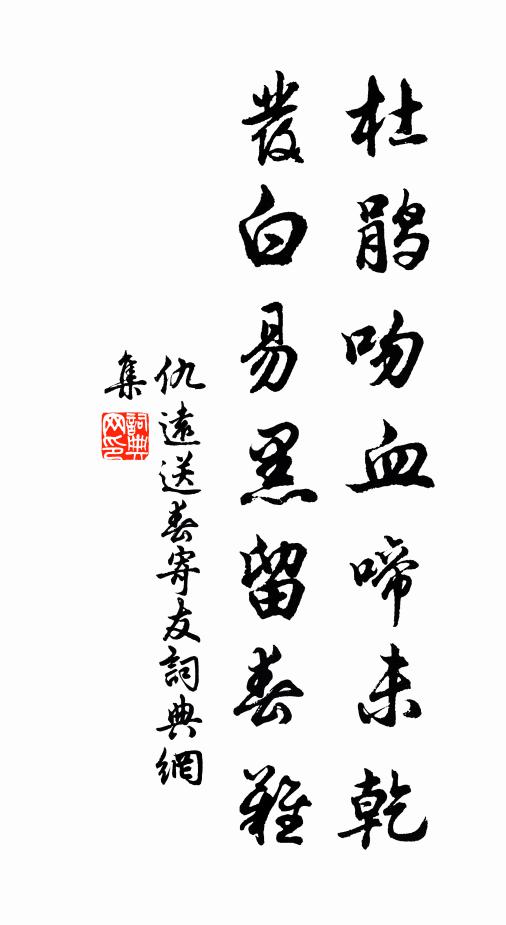 杜鹃吻血啼未乾
發白易黑留春難
仇遠送春寄友詞典網
集
詞典网印